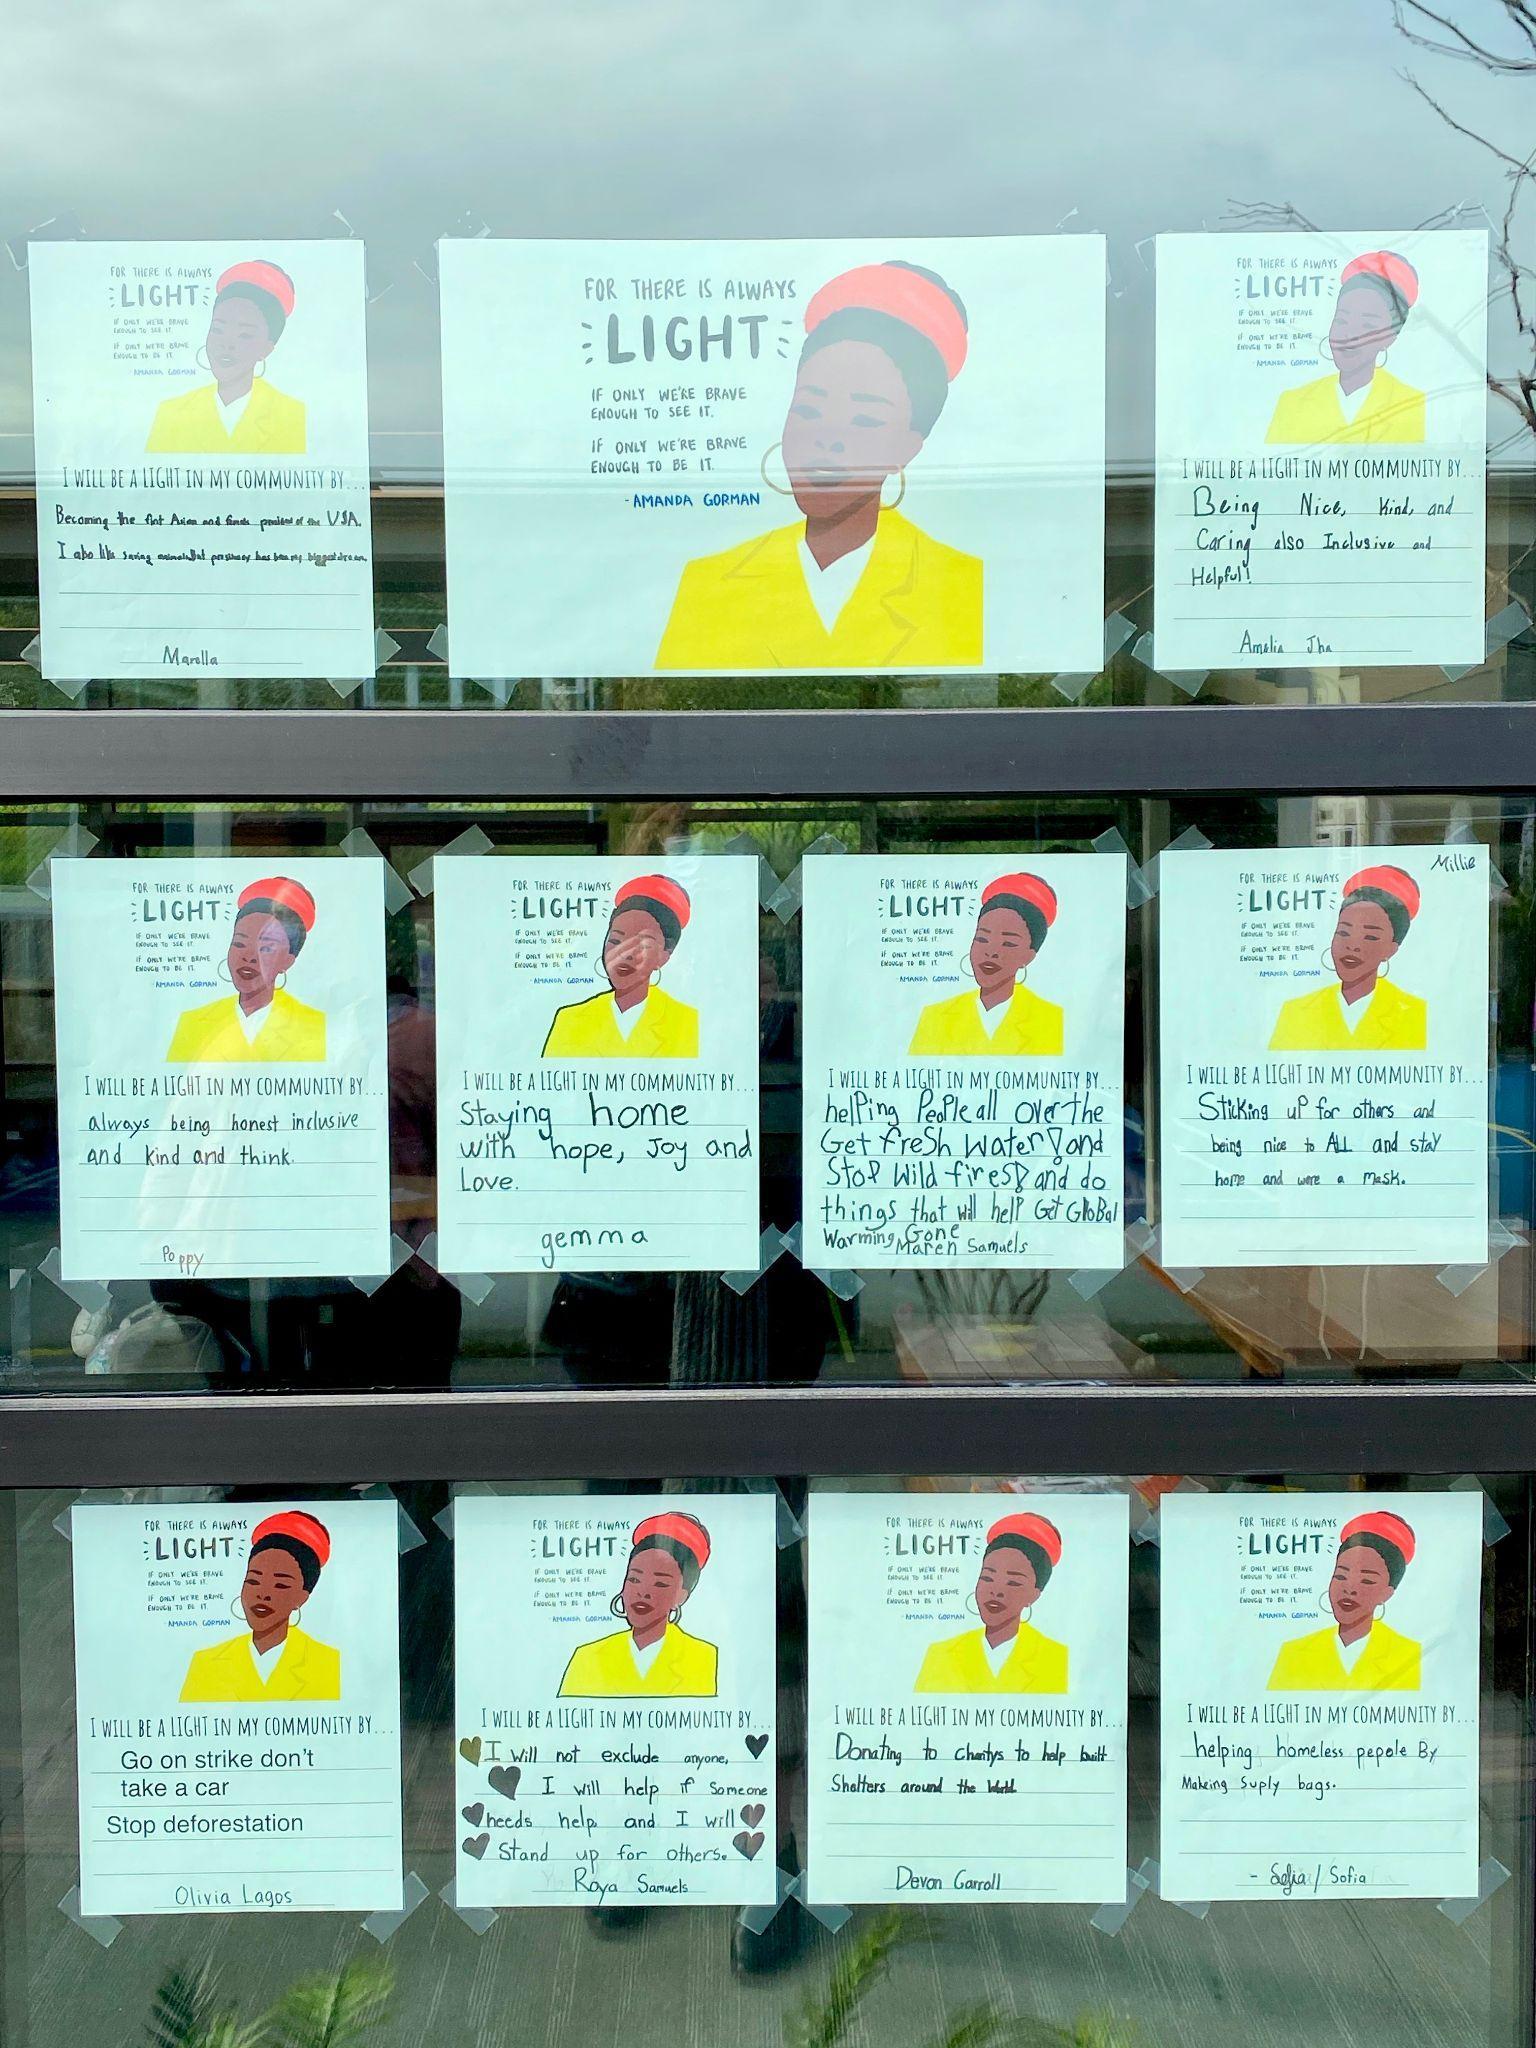 FOR THERE IS ALWAYS
LIGHT
IF ONLY WE'RE BRAVE
ENOUGH TO SEE IT.
IF ONLY WE'RE BRAVE
ENOUGH TO BE IT.
- AMANDA GORMAN
I WILL BE A LIGHT IN MY COMMUNITY BY...
Becoming the first Asian and female president of the USA.
I also like saving animals But presidency has been my biggest dream.
Marolla
FOR THERE IS ALWAYS
LIGHT
IF ONLY WE'RE BRAVE
ENOUGH TO SEE IT.
IF ONLY WE'RE BRAVE
ENOUGH TO BE IT.
- AMANDA GORMAN
FOR THERE IS ALWAYS
LIGHT
IF ONLY WE'RE BRAVE
ENOUGH TO SEE IT.
IF ONLY WE'RE BRAVE
ENOUGH TO BE IT.
- AMANDA GORMAN
I WILL BE A LIGHT IN MY COMMUNITY BY...
Being Nice, Kind, and
Caring also Inclusive and
Helpful!
Amalia Jha
FOR THERE IS ALWAYS
LIGHT
IF ONLY WE'RE BRAVE
ENOUGH TO SEE IT.
IF ONLY WE'RE BRAVE
ENOUGH TO BE IT.
- AMANDA GORMAN
I WILL BE A LIGHT IN MY COMMUNITY BY...
always being honest inclusive
and kind and think.
Poppy
FOR THERE IS ALWAYS
LIGHT
IF ONLY WE'RE BRAVE
ENOUGH TO SEE IT.
IF ONLY WE'RE BRAVE
ENOUGH TO BE IT.
- AMANDA GORMAN
I WILL BE A LIGHT IN MY COMMUNITY BY...
Staying home
with hope, Joy and
Love.
gemma
FOR THERE IS ALWAYS
LIGHT
IF ONLY WE'RE BRAVE
ENOUGH TO SEE IT.
IF ONLY WE'RE BRAVE
ENOUGH TO BE IT.
- AMANDA GORMAN
I WILL BE A LIGHT IN MY COMMUNITY BY...
helping People all over the
Get fresh water! and
Stop Wild fires! and do
things that will help Get GloBal
Warming Gone
Maren Samuels
Millie
FOR THERE IS ALWAYS
LIGHT
IF ONLY WE'RE BRAVE
ENOUGH TO SEE IT.
IF ONLY WE'RE BRAVE
ENOUGH TO BE IT.
- AMANDA GORMAN
I WILL BE A LIGHT IN MY COMMUNITY BY...
Sticking up for others and
being nice to ALL and stay
home and were a mask.
FOR THERE IS ALWAYS
LIGHT
IF ONLY WE'RE BRAVE
ENOUGH TO SEE IT.
IF ONLY WE'RE BRAVE
ENOUGH TO BE IT.
- AMANDA GORMAN
I WILL BE A LIGHT IN MY COMMUNITY BY...
Go on strike don't
take a car
Stop deforestation
Olivia Lagos
FOR THERE IS ALWAYS
LIGHT
IF ONLY WE'RE BRAVE
ENOUGH TO SEE IT.
IF ONLY WE'RE BRAVE
ENOUGH TO BE IT.
- AMANDA GORMAN
I WILL BE A LIGHT IN MY COMMUNITY BY...
I will not exclude anyone,
I will help if someone
needs help and I will
Stand up for others.
Roya Samuels
FOR THERE IS ALWAYS
LIGHT
IF ONLY WE'RE BRAVE
ENOUGH TO SEE IT.
IF ONLY WE'RE BRAVE
ENOUGH TO BE IT.
- AMANDA GORMAN
I WILL BE A LIGHT IN MY COMMUNITY BY...
Donating to charitys to help built
Shelters around the World
Devon Carroll
FOR THERE IS ALWAYS
LIGHT
IF ONLY WE'RE BRAVE
ENOUGH TO SEE IT.
IF ONLY WE'RE BRAVE
ENOUGH TO BE IT.
- AMANDA GORMAN
I WILL BE A LIGHT IN MY COMMUNITY BY...
helping homeless pepole By
Makeing Suply bags.
- Sofia / Sofia